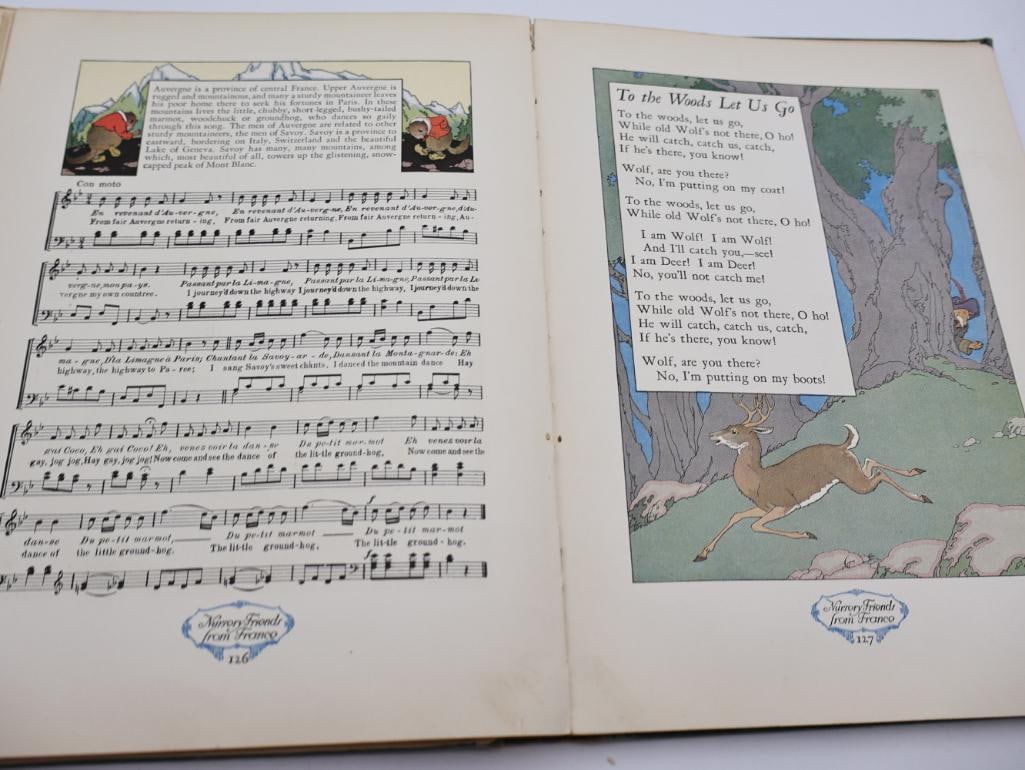 Auvergne is a province of central France. Upper Auvergne is
rugged and mountainous, and many a sturdy mountaineer leaves
his poor home there to seek his fortunes in Paris. In these
mountains lives the little, chubby, short-legged, bushy-tailed
marmot, woodchuck or groundhog, who dances so gaily
through this song. The men of Auvergne are related to other
sturdy mountaineers, the men of Savoy. Savoy is a province to
eastward, bordering on Italy, Switzerland and the beautiful
Lake of Geneva. Savoy has many, many mountains, among
which, most beautiful of all, towers up the glistening, snow-
capped peak of Mont Blanc.
Con moto
En revenant d'Au-ver-gne, En revenant d'Au-verg-ne, En revenant d'Au-ver-gne, d'Au-
From fair Auvergne return-ing, From fair Auvergne returning, From fair Auvergne return-ing, Au-
verg-ne, mon pa-ys. Passant par la Li-ma-gne, Passant par la Li-ma-gne, Passant par la Li-
vergne my own countree. I journey'd down the highway I journey'd down the highway, I journey'd down the
ma-gne, D'la Limagne à Paris; Chantant la Savoy-ar-de, Dansant la Monta-gnar-de; Eh
highway, the highway to Pa-ree; I sang Savoy's sweet chants, I danced the mountain dance Hay
gai Coco, Eh gai Coco! Eh, venez voir la dan-se Du pe-tit mar-mot Eh venez voir la
gay, jog jog, Hay gay, jog jog! Now come and see the dance of the lit-tle ground-hog, Now come and see the
dan-se Du pe-tit marmot, Du pe-tit marmot Du pe-tit marmot
dance of the little ground-hog. The lit-tle ground-hog, The lit-tle ground-hog.
Nursery Friends
from France
126
To the Woods Let Us Go
To the woods, let us go,
While old Wolf's not there, O ho!
He will catch, catch us, catch,
If he's there, you know!
Wolf, are you there?
No, I'm putting on my coat!
To the woods, let us go,
While old Wolf's not there, O ho!
I am Wolf! I am Wolf!
And I'll catch you,—see!
I am Deer! I am Deer!
No, you'll not catch me!
To the woods, let us go,
While old Wolf's not there, O ho!
He will catch, catch us, catch,
If he's there, you know!
Wolf, are you there?
No, I'm putting on my boots!
Nursery Friends
from France
127